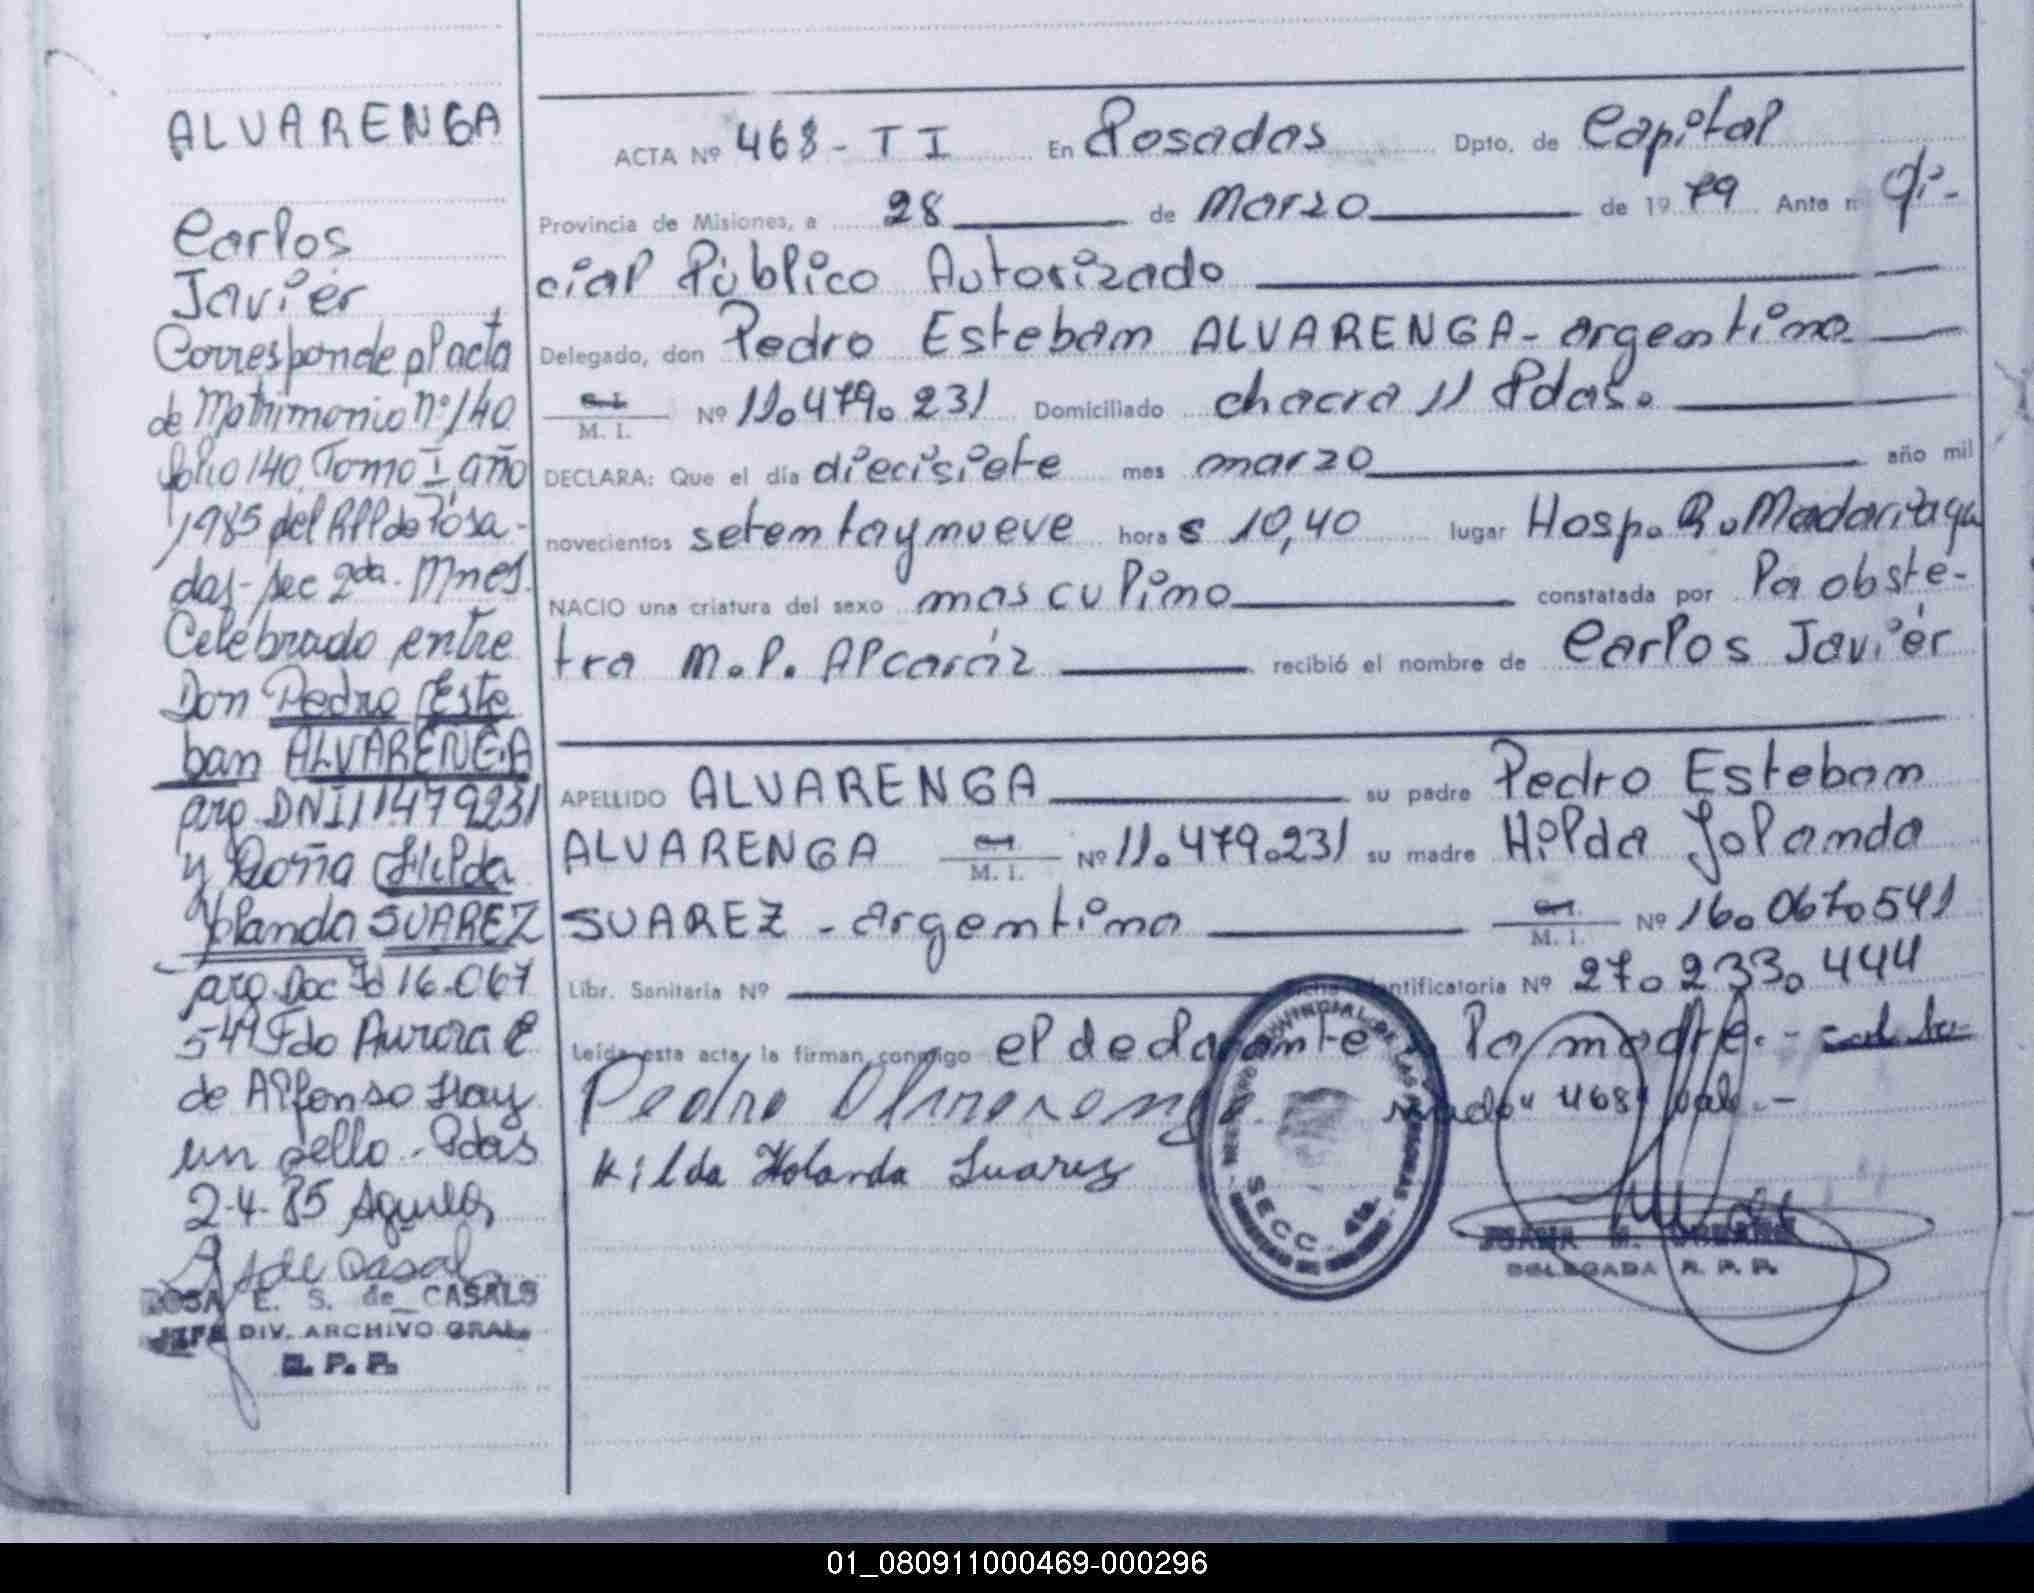 ALVARENGA
Carlos
Javier
Corresponde al acta
de Matrimonio nº 140
folio 140 Tomo I año
1985 del RPP de Posa-
das - sec 2da. Mnes.
Celebrado entre
Don Pedro Este
ban ALVARENGA
arg DNI 11479231
y Doña Hilda
Yolanda SUAREZ
arg. Doc Id 16.067
541 Fdo Aurora E
de Alfonso Hay
un sello. Pdas
2-4-85
ROSA E. S. de CASALS
JEFE DIV. ARCHIVO GRAL.
R. P. P.
ACTA Nº 468 - T I En Posadas Dpto. de Capital
Provincia de Misiones, a 28 de Marzo de 1979 Ante m Ofi-
cial Público Autorizado
Delegado, don Pedro Esteban ALVARENGA - argentino
C.I. M. I. Nº 11.479.231 Domiciliado chacra 11 Pdas.
DECLARA: Que el día diecisiete mes marzo año mil
novecientos setentaynueve horas 10,40 lugar Hosp. R. Madariaga
NACIO una criatura del sexo masculino constatada por la obste-
tra M. P. Alcaráz recibió el nombre de Carlos Javier
APELLIDO ALVARENGA su padre Pedro Esteban
ALVARENGA C.I. M. I. Nº 11.479.231 su madre Hilda Yolanda
SUAREZ - argentina C.I. M. I. Nº 16.067.541
Libr. Sanitaria Nº Identificatoria Nº 27.233.444
Leída esta acta, la firman conmigo el declarante y la madre. -
"468" vale. -
Pedro Alvarenga
Hilda Yolanda Suarez
SECC. 4ta.
DELEGADA R. P. P.
01_080911000469-000296